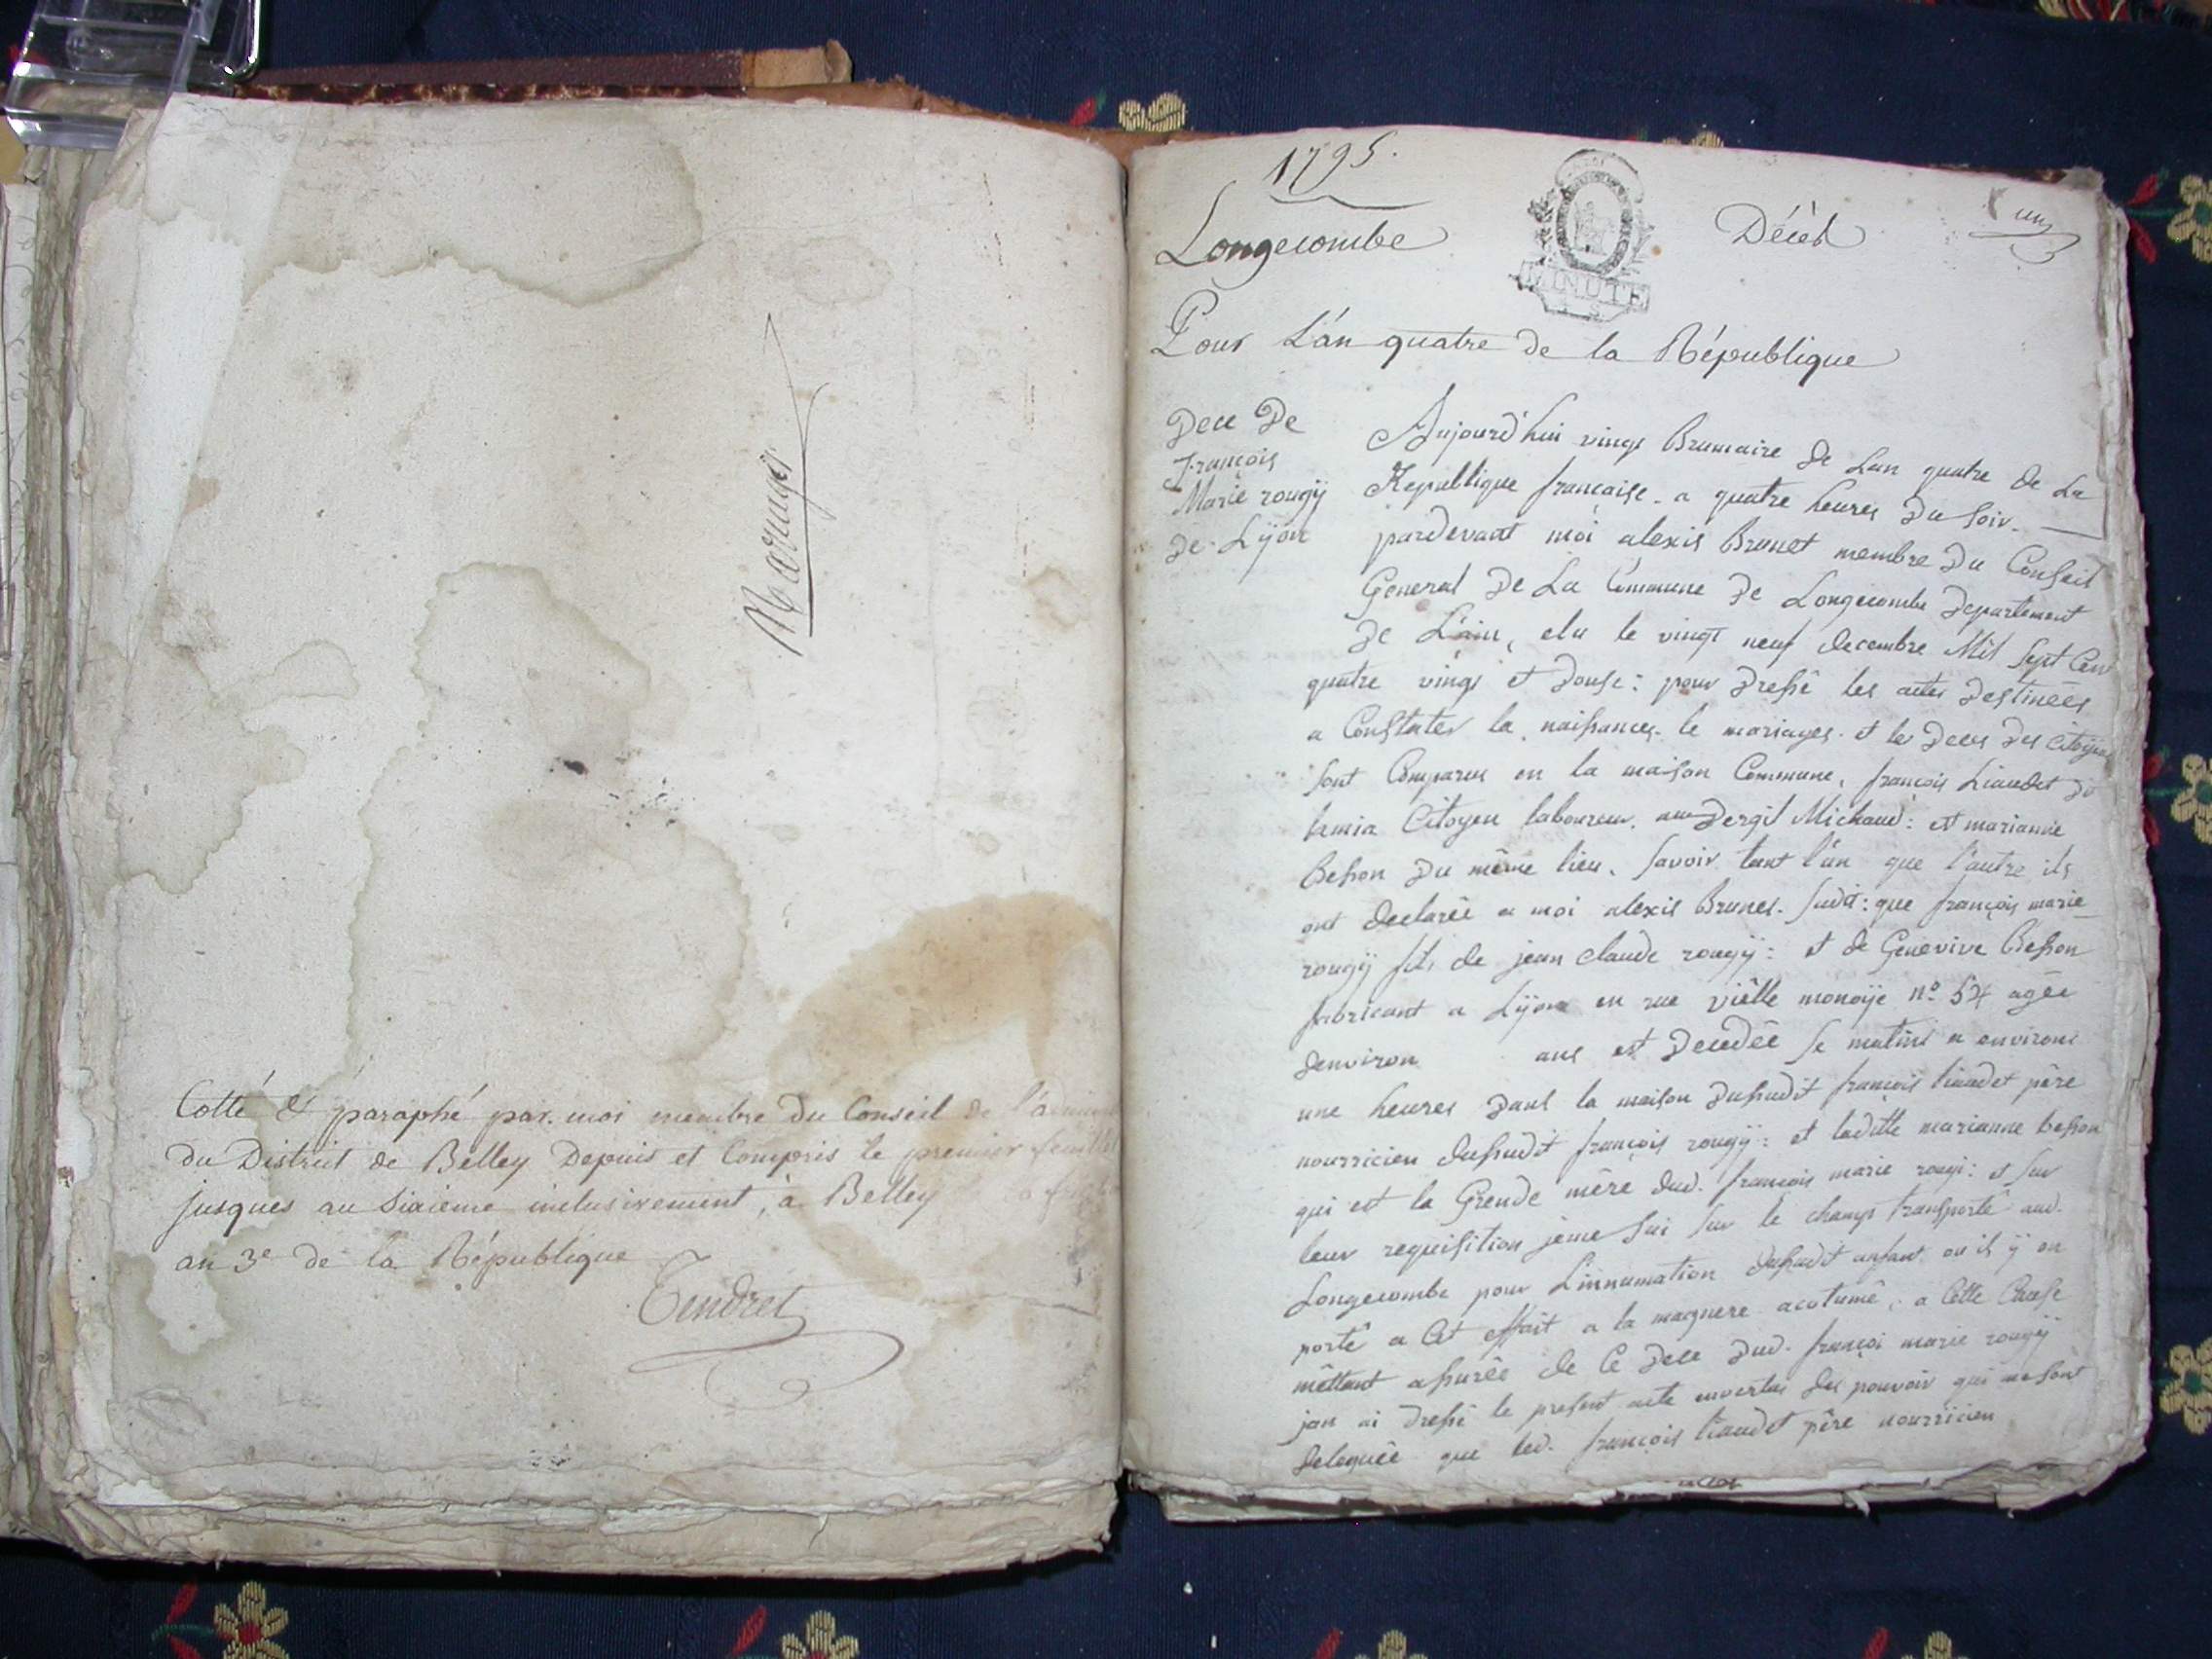 Mariages
Cotté & paraphé par moi membre du Conseil de
du District de Belley Depuis et Compris le premier
jusques au Sixieme inclusivement, à Belley
an 3e de la République
Tendret
1795.
Longecombe
MINUTE
Décès
un
Pour L'an quatre de la République
Dece De
François
Marie rougÿ
De Lÿon
Aujourd'hui vingt Brumaire de Lan quatre de La
Republique française a quatre heures Du Soir
pardevant moi alexis Brunet membre Du Conseil
General De La Commune De Longecombe Departement
De L'ain, elu le vingt neuf decembre Mil Sept Cent
quatre vingt et Douse: pour Dressé les actes Destinées
a Constater la naissances le mariages et les Deces Des Citoÿens
Sont Comparus en la maison Commune, françois Liaudet
Citoyen laboureur Michaud: et marianne
Besson Du même lieu, Savoir tant l'un que l'autre ils
ont declarée a moi alexis Brunet Sudit: que françois marie
rougÿ fils de jean claude rougÿ: et de Genevive Besson
fabricant a Lÿon en rue viêlle monoÿe nº agée
Denviron ans est Decedée Se matins a environs
une heures Dans la maison Dusudit françois liaudet père
nourricien dusudit françois rougÿ: et laditte marianne besson
qui est la Grende mère dud. françois marie rougi: et Sur
leur requisition jeme Sui Sur le champs transporté aud.
Longecombe pour Linnumation dusudit enfant ou il ÿ on
porté a Cet effait a la magnere acotumé, a Cette Cause
mêttant assurée de Ce Dece Dud. françoi marie rougÿ
jan ai Dressé le present acte envertus des pouvoir qui me sont
Deleguée que led. françois liaudet père nourricien